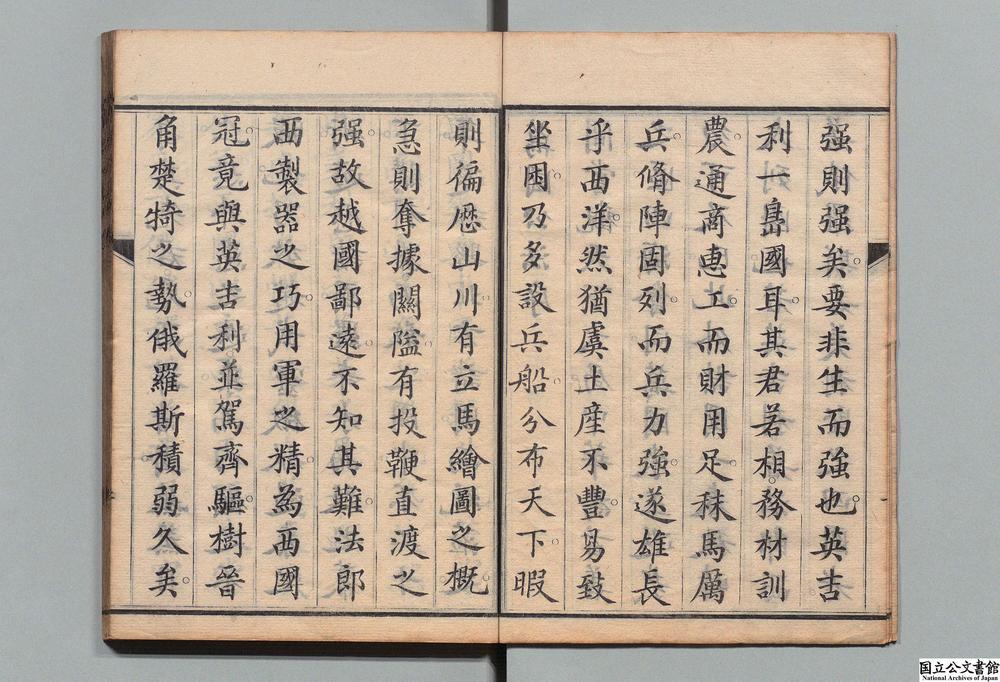 强則强矣要非生而強也英吉
利一島國耳其君若相務材訓
農通商恵工而財用足秣馬厲
兵脩陣固列而兵力強遂雄長
乎西洋然猶虞土産不豐易致
坐困乃多設兵船分布天下暇
則徧歴山川有立馬繪圖之概
急則奪據關隘有投鞭直渡之
强故越國鄙遠不知其難法郎
西製器之巧用軍之精為西國
冠竟與英吉利並駕齊驅樹晉
角楚犄之勢俄羅斯積弱久矣
国立公文書館
National Archives of Japan